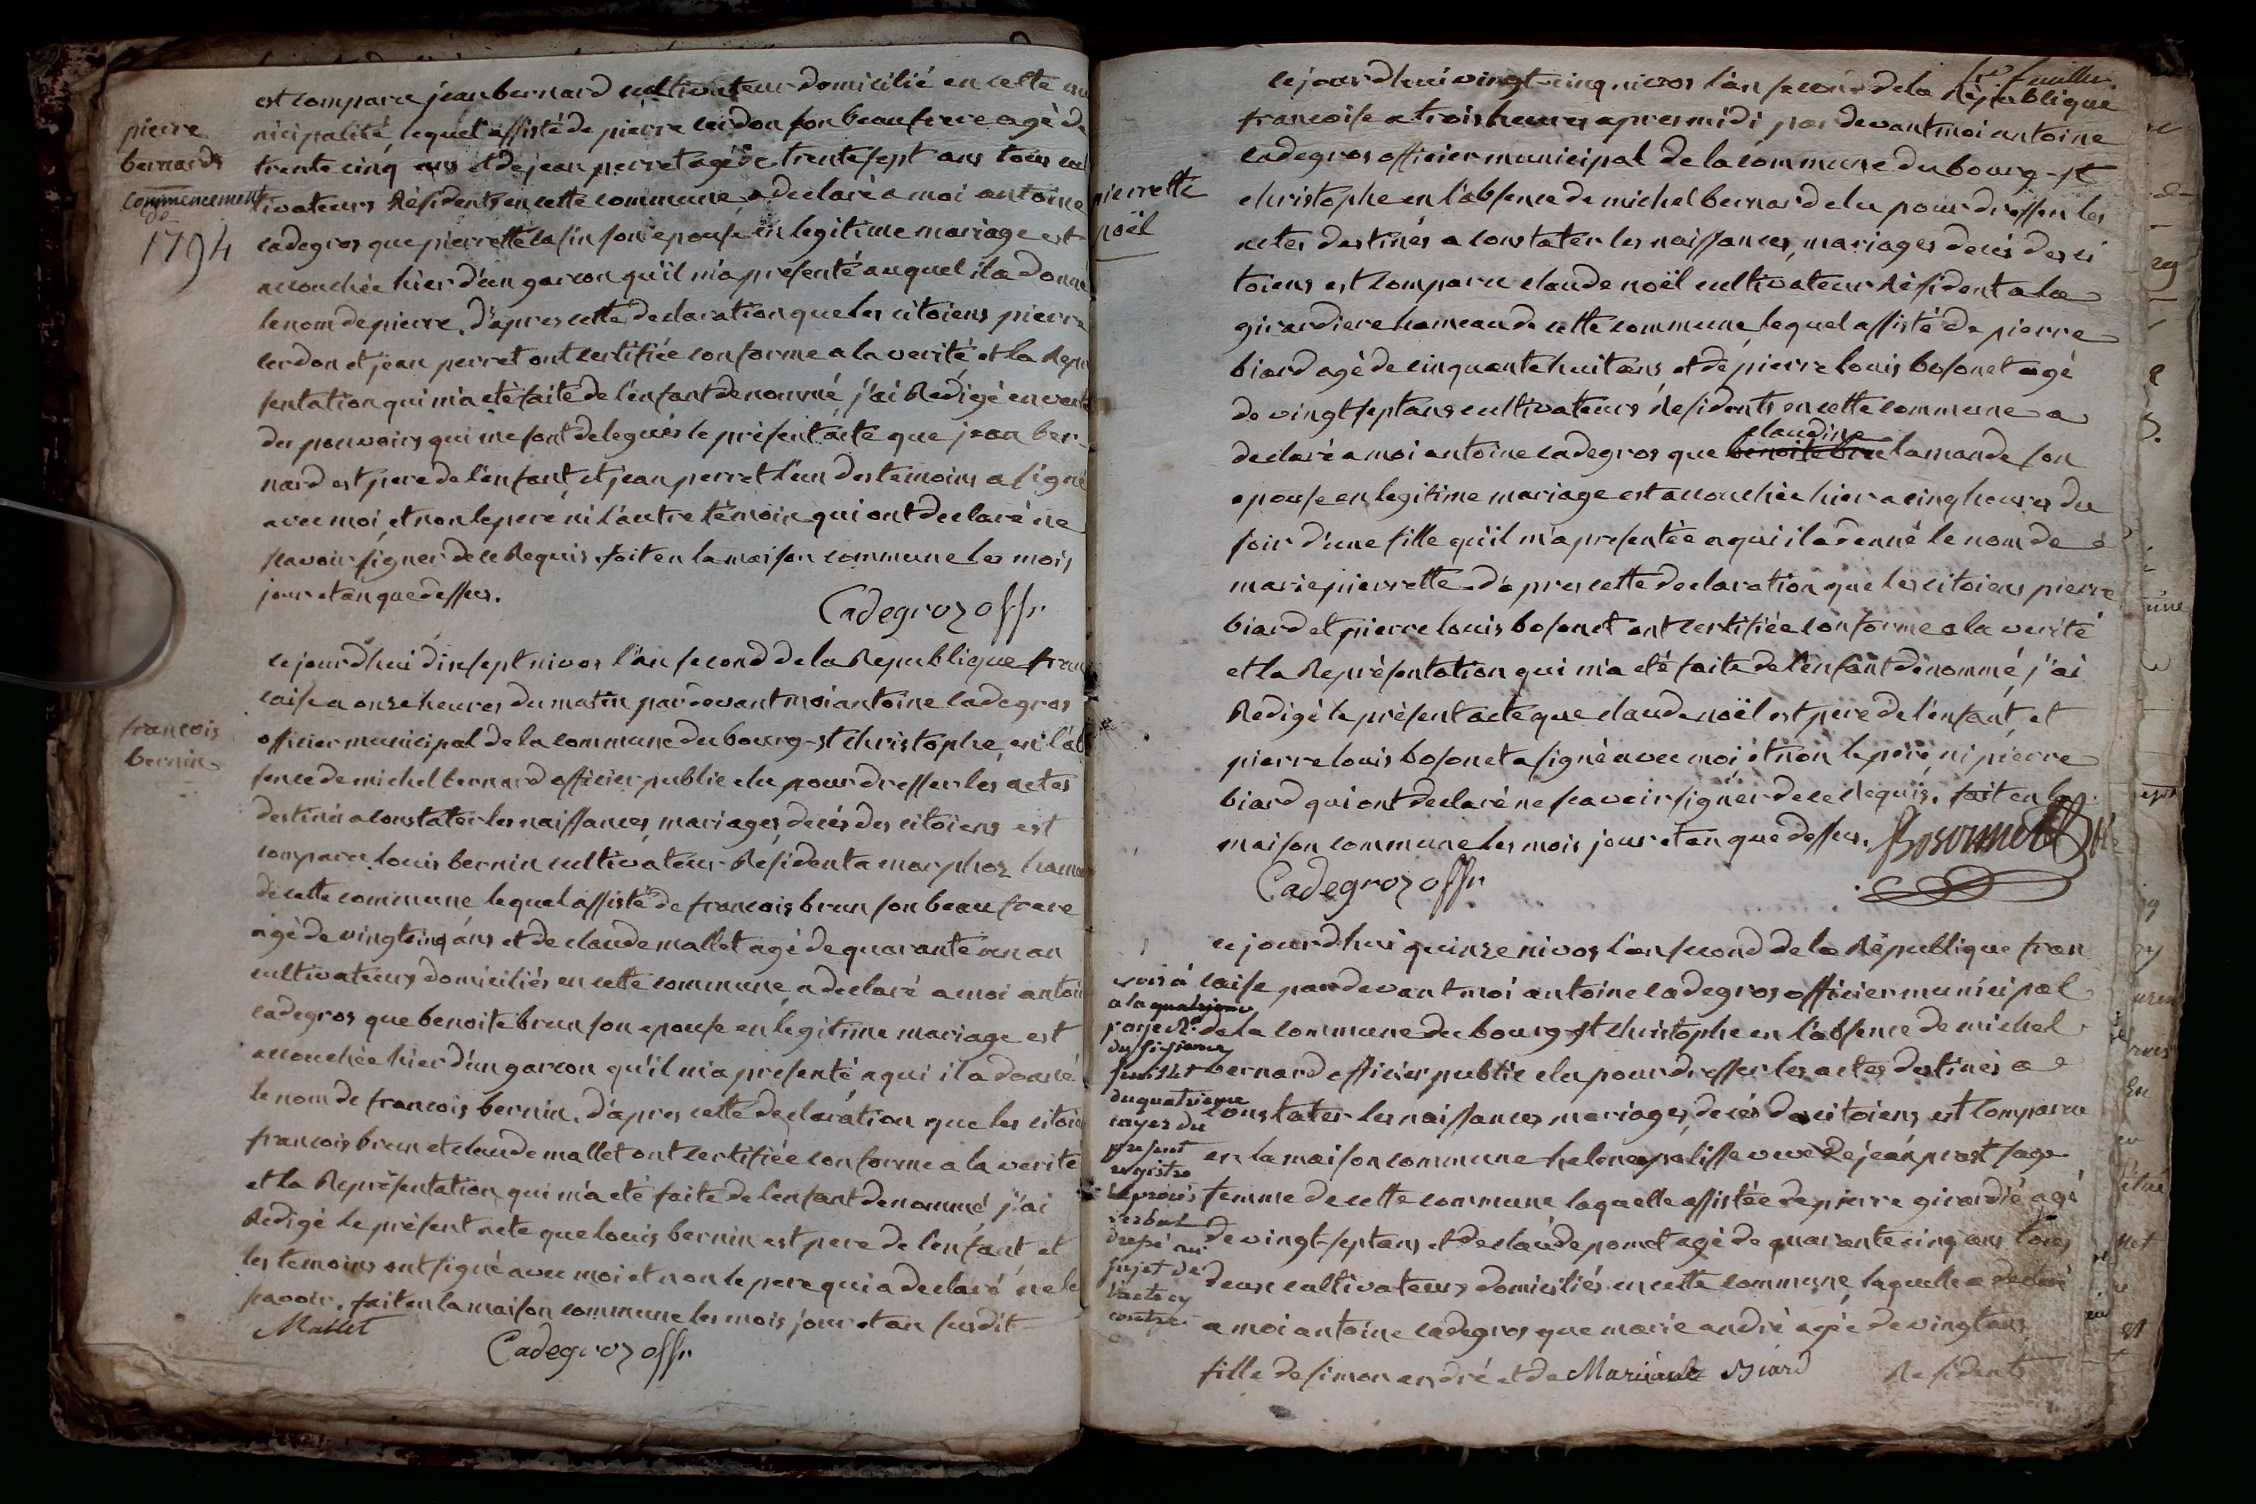 pierre
bernard
commencement
de
1794
est comparu jean bernard cultivateur domicilié en cette mu
nicipalité, lequel assisté de pierre cerdon son beau frere agè de
trente cinq ans et de jean perret agè de trente sept ans tous cul
tivateurs Résidents en cette commune, a declaré a moi antoine
cadegros que pierrette lasin son epouse en legitime mariage est
accouchée hier d'un garcon qu'il m'a presenté auquel il a donné
le nom de pierre. d'apres cette declaration que les citoiens pierre
cerdon et jean perret ont certifiée conforme a la verité, et la Repré
sentation qui m'a eté faite de l'enfant denommé, j'ai Redigé en vertu
des pouvoirs qui me sont delegués le présent acte que jean ber-
nard est pere de l'enfant, et jean perret l'un des temoins a signé
avec moi, et non le pere ni l'autre témoin qui ont declaré ne
scavoir signer de ce Requis. fait en la maison commune les mois
jour et an que dessus.
Cadegroz offr
francois
bernin
cejourd'hui dixsept nivos l'an second de la Republique fran
caise a onze heures du matin pardevant moi antoine cadegros
officier municipal de la commune du bourg-st christophe, en l'ab
sence de michel bernard officier public elu pour dresser les actes
destinés a constater les naissances, mariages, decés des citoiens est
comparu louis bernin cultivateur Résident a marphoz hameau
de cette commune lequel assisté de francois brun son beau frere
agè de vingt cinq ans et de claude mallet agè de quarante un an
cultivateurs domiciliés en cette commune, a declaré a moi antoine
cadegros que benoite brun son epouse en legitime mariage est
accouchée hier d'un garcon qu'il m'a presenté a qui il a donné
le nom de francois bernin. d'apres cette declaration que les citoiens
francois brun et claude mallet ont certifiée conforme a la verité
et la Représentation qui m'a eté faite de l'enfant denommé j'ai
Redigé le présent acte que louis bernin est pere de l'enfant et
les temoins ont signé avec moi et non le pere qui a declaré ne le
scavoir. fait en la maison commune les mois jour et an susdit
Mallet
Cadegroz offr
pierrette
noël
cejourd'hui vingt-cinq nivos l'an second de la Republique
francoise a trois heures apres midi par devant moi antoine
cadegros officier municipal de la commune du bourg-st
christophe en l'absence de michel bernard elu pour dresser les
actes destinés a constater les naissances, mariages decés des ci
toiens est comparu claude noël cultivateur Résident a la
girardiere hameau de cette commune, lequel assisté de pierre
biard agè de cinquante huit ans et de pierre louis bosonet agè
de vingt sept ans cultivateurs Residents en cette commune a
claudine
declaré a moi antoine cadegros que benoite brue lamande son
epouse en legitime mariage est accouchée hier a cinq heures du
soir d'une fille qu'il m'a presentée a qui il a donné le nom de
marie pierrette. d'apres cette declaration que les citoiens pierre
biard et pierre louis bosonet ont certifiée conforme a la verité
et la Représentation qui m'a eté faite de l'enfant denommé j'ai
Redigé le présent acte que claude noël est pere de l'enfant, et
pierre louis bosonet a signè avec moi et non le pere ni pierre
biard qui ont declaré ne scavoir signer de ce Requis. fait en la
maison commune les mois jour et an que dessus.
Bosonnet
Cadegroz offr
a la quatrieme
page
du sixieme
feuillet
du quatrieme
cayer du
présent
registre
le procès
verbal
au
sujet de
l'acte cy
contre
cejourd'hui quinze nivos l'an second de la République fran
caise pardevant moi antoine cadegros officier municipal
de la commune du bourg-st christophe en l'absence de michel
bernard officier public elu pour dresser les actes destinés a
constater les naissances mariages, decés des citoiens est comparue
en la maison commune helene palisse veuve de jean prost sage
femme de cette commune laquelle assistée de pierre girardié agè
de vingt-sept ans et de claude ponet agè de quarante cinq ans tous
deux cultivateurs domiciliés en cette commune laquelle a declaré
a moi antoine cadegros que marie andrè agée de vingt ans
fille de simon andré et de Biard Résidents